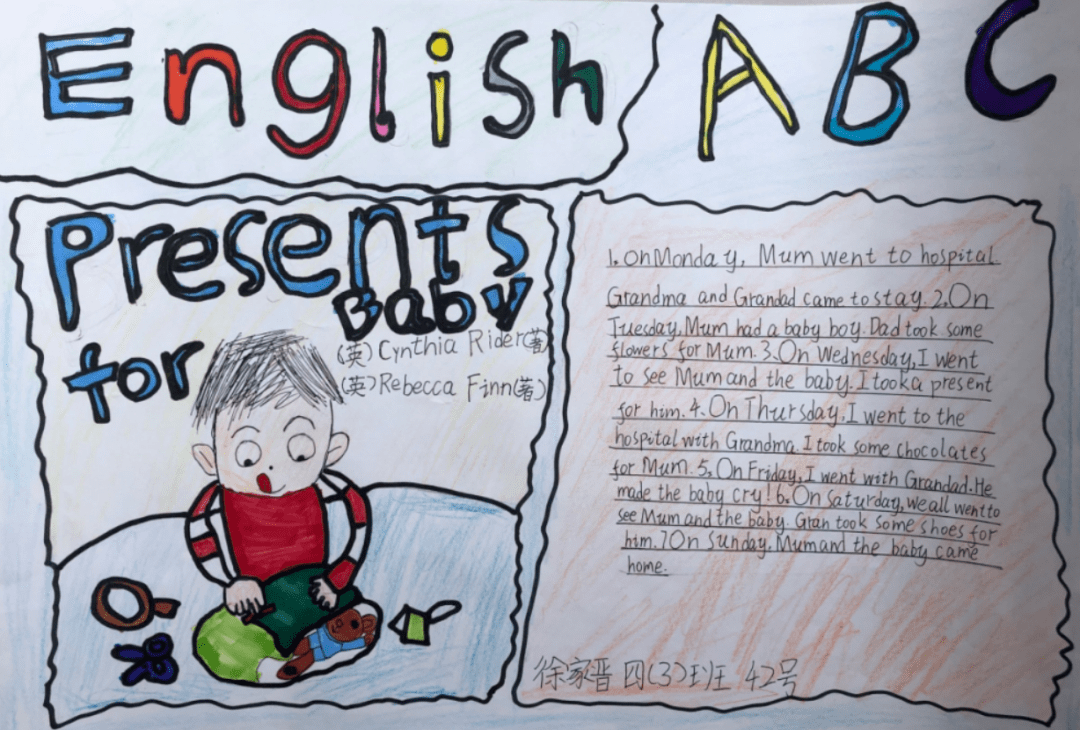 English ABC
Presents
Baby
for
(英)Cynthia Rider(著)
(英)Rebecca Finn(著)
1. On Monday, Mum went to hospital
Grandma and Grandad came to stay. 2. On
Tuesday, Mum had a baby boy. Dad took some
flowers for Mum. 3. On Wednesday, I went
to see Mum and the baby. I took a present
for him. 4. On Thursday, I went to the
hospital with Grandma. I took some chocolates
for Mum. 5. On Friday, I went with Grandad. He
made the baby cry! 6. On Saturday, we all went to
see Mum and the baby. Gran took some shoes for
him. 7 On Sunday, Mum and the baby came
home.
徐家晋 四(3)班 42号